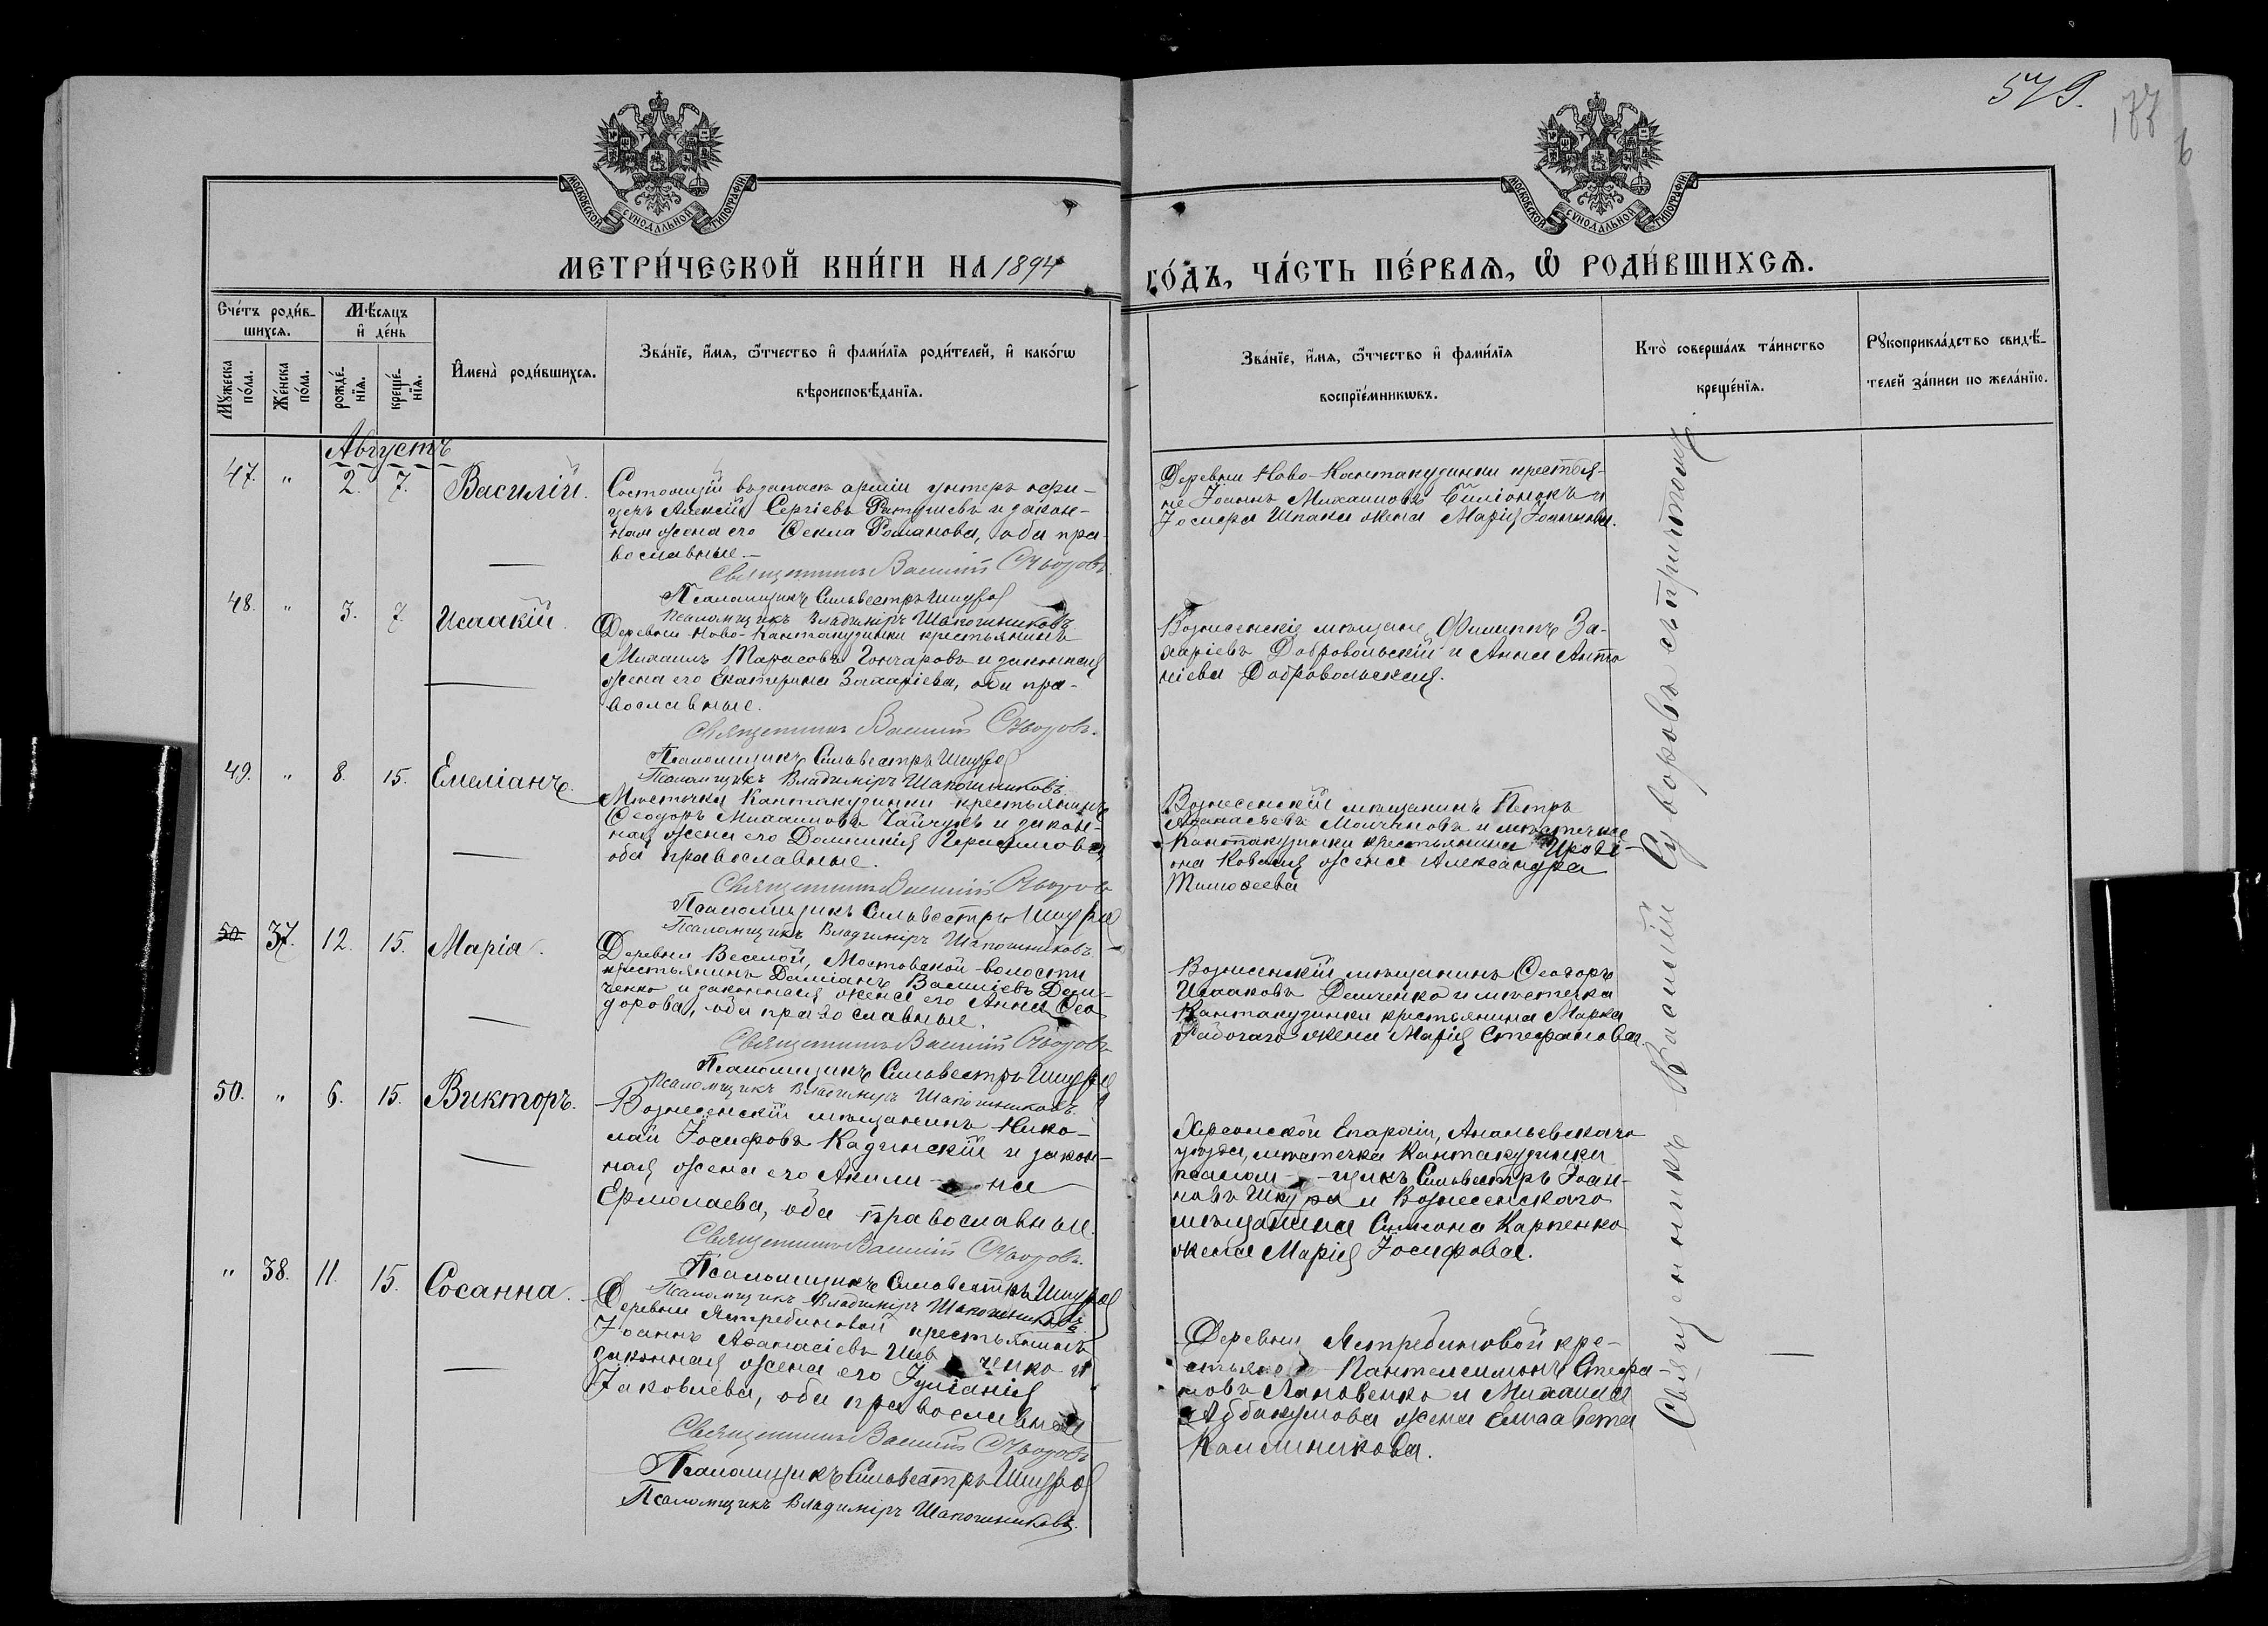 579.
177
6
МОСКОВСКОЙ СУНОДАЛЬНОЙ ТИПОГРАФІИ
МОСКОВСКОЙ СУНОДАЛЬНОЙ ТИПОГРАФІИ
МЕТРИ́ЧЕСКОЙ КНИ́ГИ НА 1894 ГО́ДЪ, ЧА́СТЬ ПЕ́РВАѦ, Ѡ҆ РОДИ́ВШИХСѦ.
Сче́тъ роди́в-
шихсѧ.
Мꙋ́жеска по́ла.
Же́нска по́ла.
Мѣ́сѧцъ
и҆ де́нь
рожде́-нїѧ.
креще́-нїѧ.
И҆мена̀ роди́вшихсѧ.
Зва́нїе, и҆́мѧ, ѻ҆́тчество и҆ фами́лїѧ роди́телей, и҆ како́гѡ
вѣроисповѣ́данїѧ.
Зва́нїе, и҆́мѧ, ѻ҆́тчество и҆ фами́лїѧ
воспрїе́мникѡвъ.
Кто̀ соверша́лъ та́инство
креще́нїѧ.
Рꙋкоприкла́дство свидѣ́-
телей за́писи по жела́нїю.
Августъ
47. " 2. 7. Василій.
Состоящій въ запасѣ арміи унтеръ офи-
церъ Алексій Сергіевъ и закон-
ная жена его Ѳекла Романова, оба пра-
вославные.
Священникъ Василій Суворовъ.
Псаломщикъ Сильвестръ Шкура
Псаломщикъ Владиміръ Шапошниковъ.
Деревни Ново-Кантакузинки крестья-
не Іоаннъ Михаиловъ и
Іосифа Шпака жена Марія Іоаннова.
48. " 3. 7. Исаакій.
Деревни Ново-Кантакузинки крестьянинъ
Михаилъ Тарасовъ Гончаровъ и законная
жена его Екатерина Захаріева, оба пра-
вославные.
Священникъ Василій Суворовъ.
Псаломщикъ Сильвестръ Шкура
Псаломщикъ Владиміръ Шапошниковъ.
Вознесенскіе мѣщане Филиппъ За-
харіевъ Добровольскій и Анна Анто
ніева Добровольская.
49. " 8. 15. Емеліанъ.
Мѣстечка Кантакузинки крестьянинъ
Ѳеодоръ Михаиловъ и закон-
ная жена его Домникія Герасимова,
оба православные.
Священникъ Василій Суворовъ
Псаломщикъ Сильвестръ Шкура
Псаломщикъ Владиміръ Шапошниковъ.
Вознесенскій мѣщанинъ Петръ
Аѳанасьевъ Молчановъ и мѣстечка
Кантакузинки крестьянина Иродi-
она Коваля жена Александра
Тимоѳеева
50 37. 12. 15. Марія.
Деревни Веселой, Мостовской волости
крестьянинъ Даміанъ Василіевъ Дем-
ченко и законная жена его Анна Ѳео
дорова, оба православные.
Священникъ Василій Суворовъ
Псаломщикъ Сильвестръ Шкура
Псаломщикъ Владиміръ Шапошниковъ.
Вознесенскій мѣщанинъ Ѳеодоръ
Исааковъ Демченко и мѣстечка
Кантакузинки крестьянина Марка
Рабочаго жена Марія Стефанова.
50. " 6. 15. Викторъ.
Вознесенскій мѣщанинъ Нико-
лай Іосифовъ Кадинскій и закон-
ная жена его Акили-на
Ермолаева, оба православные.
Священникъ Василій Суворовъ.
Псаломщикъ Сильвестръ Шкура
Псаломщикъ Владиміръ Шапошниковъ
Херсонской Епархіи, Ананьевскаго
уѣзда, мѣстечка Кантакузинки
псалом-щикъ Сильвестръ Іоан-
новъ Шкура и Вознесенскаго
мѣщанина Симона Карпенко
жена Марія Іосифова.
" 38. 11. 15. Сосанна.
Деревни Ястребиновой крестьянинъ
Іоаннъ Аѳанасіевъ Шевченко и
законная жена его Іуліанія
Іаковлева, оба православные
Священникъ Василій Суворовъ
Псаломщикъ Сильвестръ Шкура
Псаломщикъ Владиміръ Шапошниковъ.
Деревни Ястребиновой кре-
стьяне Пантелеимонъ Стефа-
новъ Лановенко и Михаила
Аввакумова жена Елисавета
Каллиникова.
Священникъ Василій Суворовъ съ причтомъ.